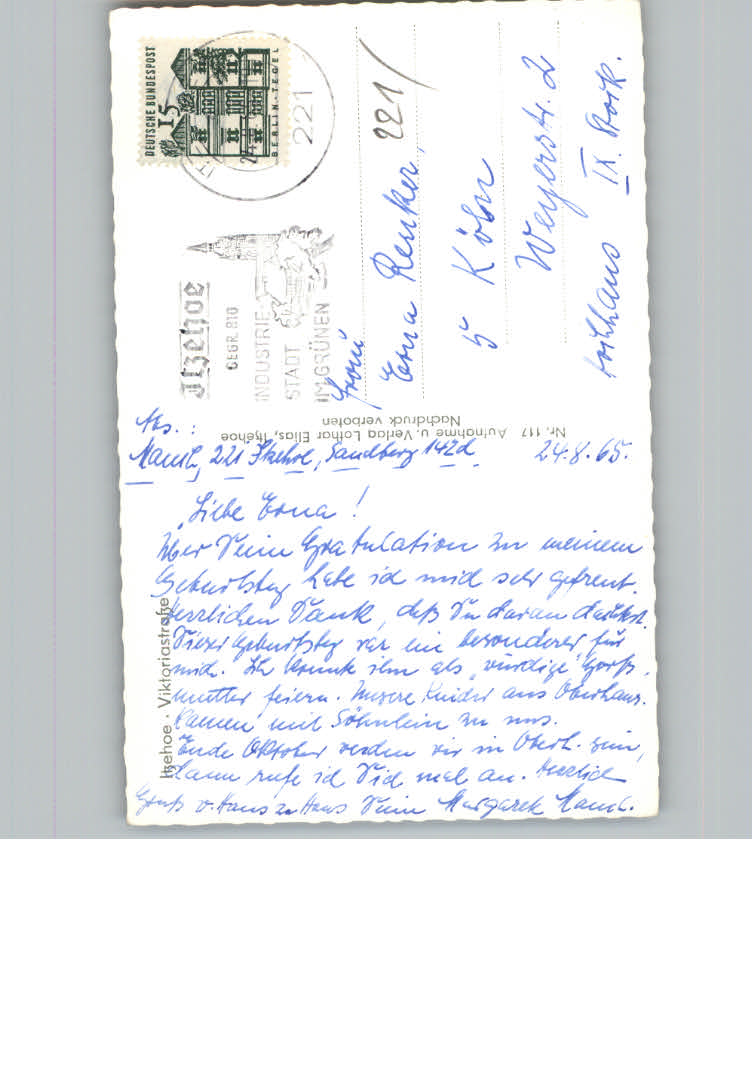 DEUTSCHE BUNDESPOST
15
BERLIN-TEGEL
221
Itzehoe
GEGR. 810
INDUSTRIE-
STADT
IM GRÜNEN
221/
Frau
Erna Renker
5 Köln
Weyerstr. 2
Hochhaus IX. Stock.
Nr. 117 Aufnahme u. Verlag Lothar Elias, Itzehoe
Nachdruck verboten
Itzehoe · Viktoriastraße
Abs.:
221 Itzehoe, Sandberg 142d 24.8.65.
Liebe Erna!
Über Deine Gratulation zu meinem
Geburtstag habe ich mich sehr gefreut.
Herzlichen Dank, daß Du daran dachtest.
Dieser Geburtstag war ein besonderer für
mich. Ich konnte ihn als "würdige" Groß-
mutter feiern. Unsere Kinder aus Oberhaus.
kamen mit Söhnlein zu uns.
Ende Oktober werden wir in Oberh. sein,
dann rufe ich Dich mal an. Herzlich
Gruß v. Haus zu Haus Deine Margarete